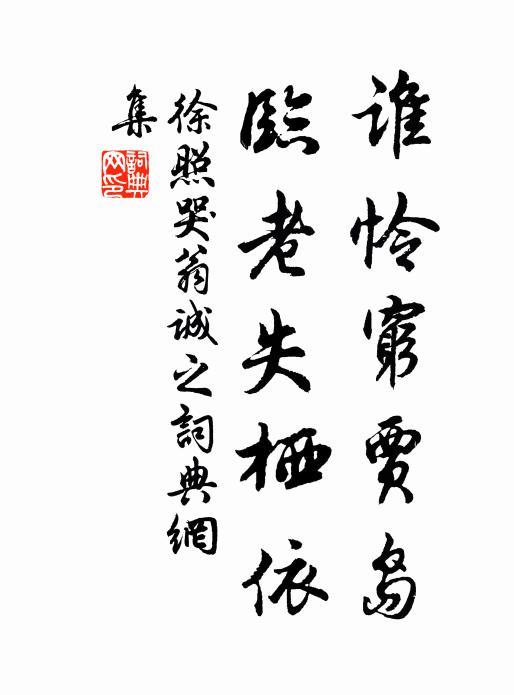 谁怜穷贾岛
临老失栖依
徐照哭翁诚之词典網
集
詞典
网印